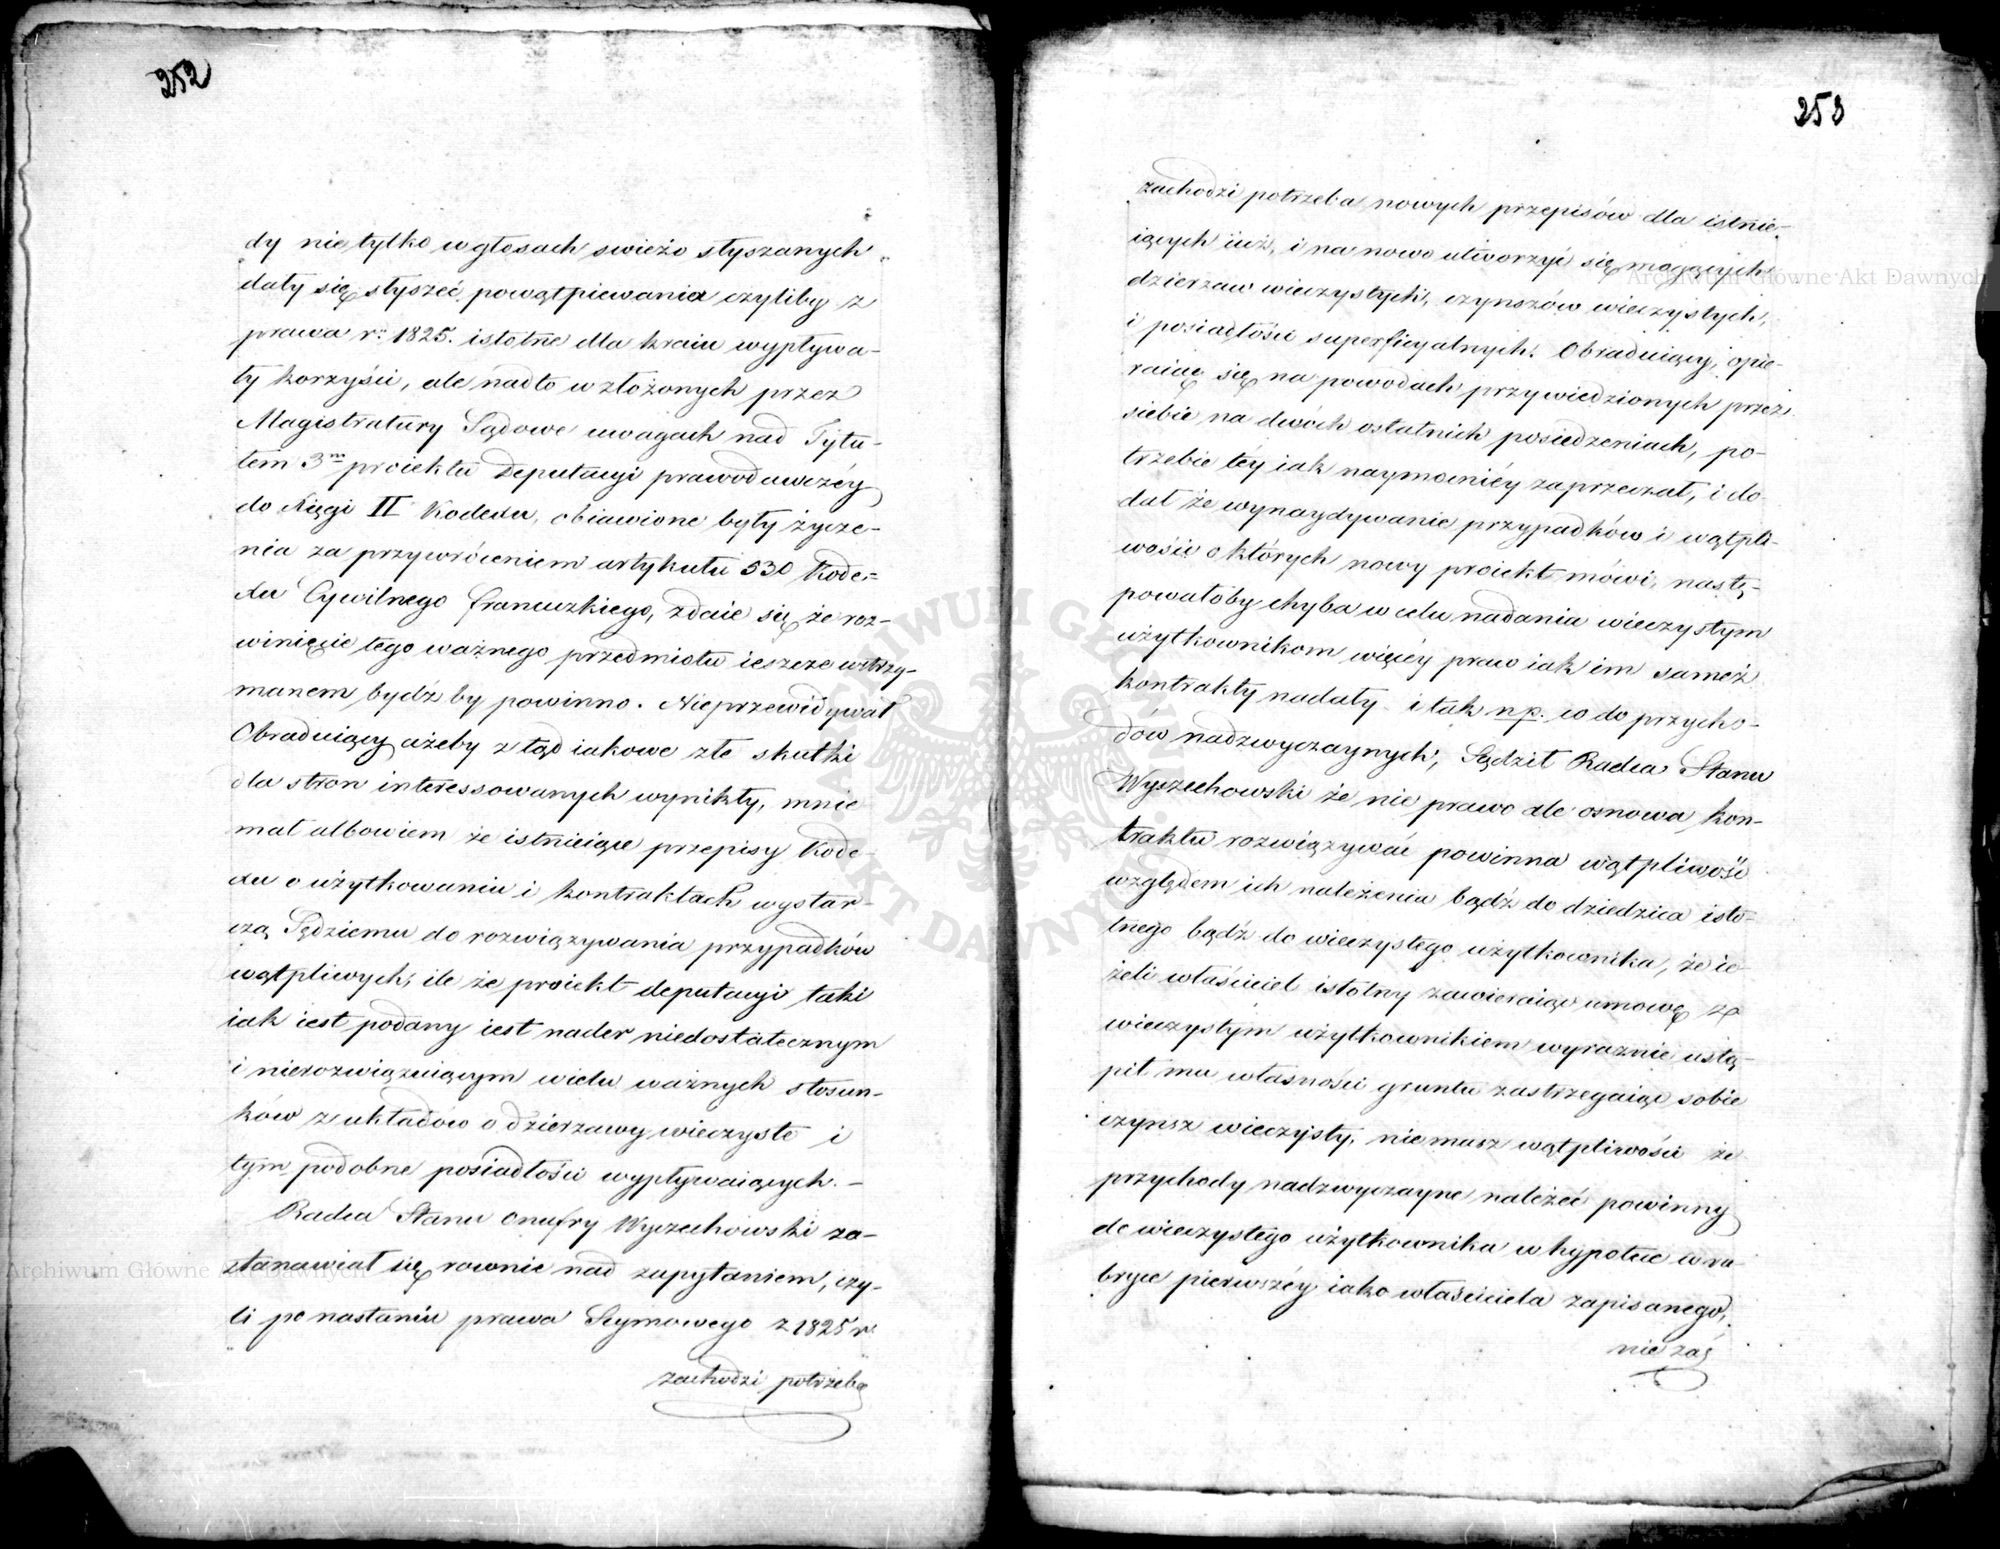 252
dy nie tylko w głosach swieżo słyszanych
dały się słyszeć powątpiewania czyliby z
prawa r: 1825. istotne dla kraiu wypływa-
ły korzyści, ale nadto w złożonych przez
Magistratury Sądowe uwagach nad Tytu-
łem 3m proiektu Deputacyi prawodawczéy
do Xięgi II Kodexu, obiawione były życze-
nia za przywróceniem artykułu 530 Kode-
xu Cywilnego francuzkiego, zdaie się że roz-
winięcie tego ważnego przedmiotu ieszcze wstrzy-
manem bydź by powinno. Nieprzewidywał
Obraduiący ażeby z tąd iakowe złe skutki
dla stron interessowanych wynikły, mnie
mał albowiem że istnieiące przepisy Kode-
xu o użytkowaniu i kontraktach wystar-
czą Sędziemu do rozwiązywania przypadków
wątpliwych; ile że proiekt deputacyi taki
iak iest podany iest nader niedostatecznym
i nierozwiązuiącym wielu ważnych stosun-
ków z układów o dzierzawy wieczyste i
tym podobne posiadłości wypływaiących. -
Radca Stanu Onufry Wyczechowski za-
stanawiał się rownie nad zapytaniem, czy-
li po nastaniu prawa Seymowego z 1825 r.
zachodzi potrzeba
253
zachodzi potrzeba nowych przepisów dla istnie-
iących iuż, i na nowo utworzyć się mogących
dzierzaw wieczystych, czynszów wieczystych,
i posiadłości superficyalnych. Obraduiący, opie-
raiąc się na powodach przywiedzionych przez
siebie na dwóch ostatnich posiedzeniach, po-
trzebie tey iak naymocniéy zaprzeczał, i do-
dał że wynaydywanie przypadków i wątpli-
wości o których nowy proiekt mówi, nastę-
powałoby chyba w celu nadania wieczystym
użytkownikom więcéy praw iak im sameż
kontrakty nadały. i tak np. co do przycho-
dów nadzwyczaynych; Sądził Radca Stanu
Wyczechowski że nie prawo ale osnowa kon-
traktu rozwiązywać powinna wątpliwość
względem ich należenia bądź do dziedzica isto-
tnego bądź do wieczystego użytkownika, że ie-
żeli właściciel istotny zawieraiąc umowę z
wieczystym użytkownikiem wyraznie ustą-
pił mu własności gruntu zastrzegaiąc sobie
czynsz wieczysty, nie masz wątpliwości że
przychody nadzwyczayne należeć powinny
do wieczystego użytkownika w hypotece w ru-
bryce pierwszéy iako właściciela zapisanego,
nie zaś
Archiwum Główne Akt Dawnych
Archiwum Główne Akt Dawnych
ARCHIWUM GŁÓWNE AKT DAWNYCH